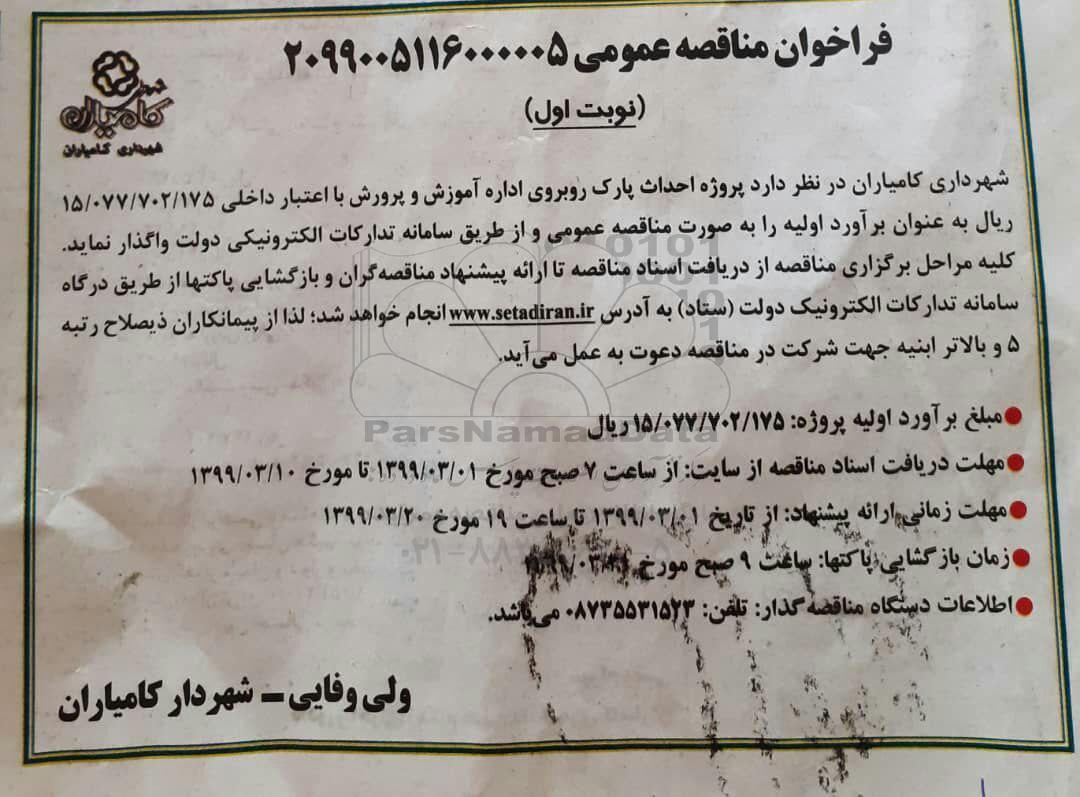 فراخوان مناقصه عمومی ۲۰۹۹۰۰۵۱۱۶۰۰۰۰۰۵
(نوبت اول)
کامیاران
شهرداری کامیاران
شهرداری کامیاران در نظر دارد پروژه احداث پارک روبروی اداره آموزش و پرورش با اعتبار داخلی ۱۵/۰۷۷/۷۰۲/۱۷۵
ریال به عنوان برآورد اولیه را به صورت مناقصه عمومی و از طریق سامانه تدارکات الکترونیکی دولت واگذار نماید.
کلیه مراحل برگزاری مناقصه از دریافت اسناد مناقصه تا ارائه پیشنهاد مناقصه‌گران و بازگشایی پاکتها از طریق درگاه
سامانه تدارکات الکترونیک دولت (ستاد) به آدرس www.setadiran.ir انجام خواهد شد؛ لذا از پیمانکاران ذیصلاح رتبه
۵ و بالاتر ابنیه جهت شرکت در مناقصه دعوت به عمل می‌آید.
مبلغ برآورد اولیه پروژه: ۱۵/۰۷۷/۷۰۲/۱۷۵ ریال
ParsNamadData
مهلت دریافت اسناد مناقصه از سایت: از ساعت ۷ صبح مورخ ۱۳۹۹/۰۳/۰۱ تا مورخ ۱۳۹۹/۰۳/۱۰
مهلت زمانی ارائه پیشنهاد: از تاریخ ۱۳۹۹/۰۳/۰۱ تا ساعت ۱۹ مورخ ۱۳۹۹/۰۳/۲۰
زمان بازگشایی پاکتها: ساعت ۹ صبح مورخ
اطلاعات دستگاه مناقصه گذار: تلفن: ۰۸۷۳۵۵۳۱۵۲۳ می‌باشد.
ولی وفایی - شهردار کامیاران